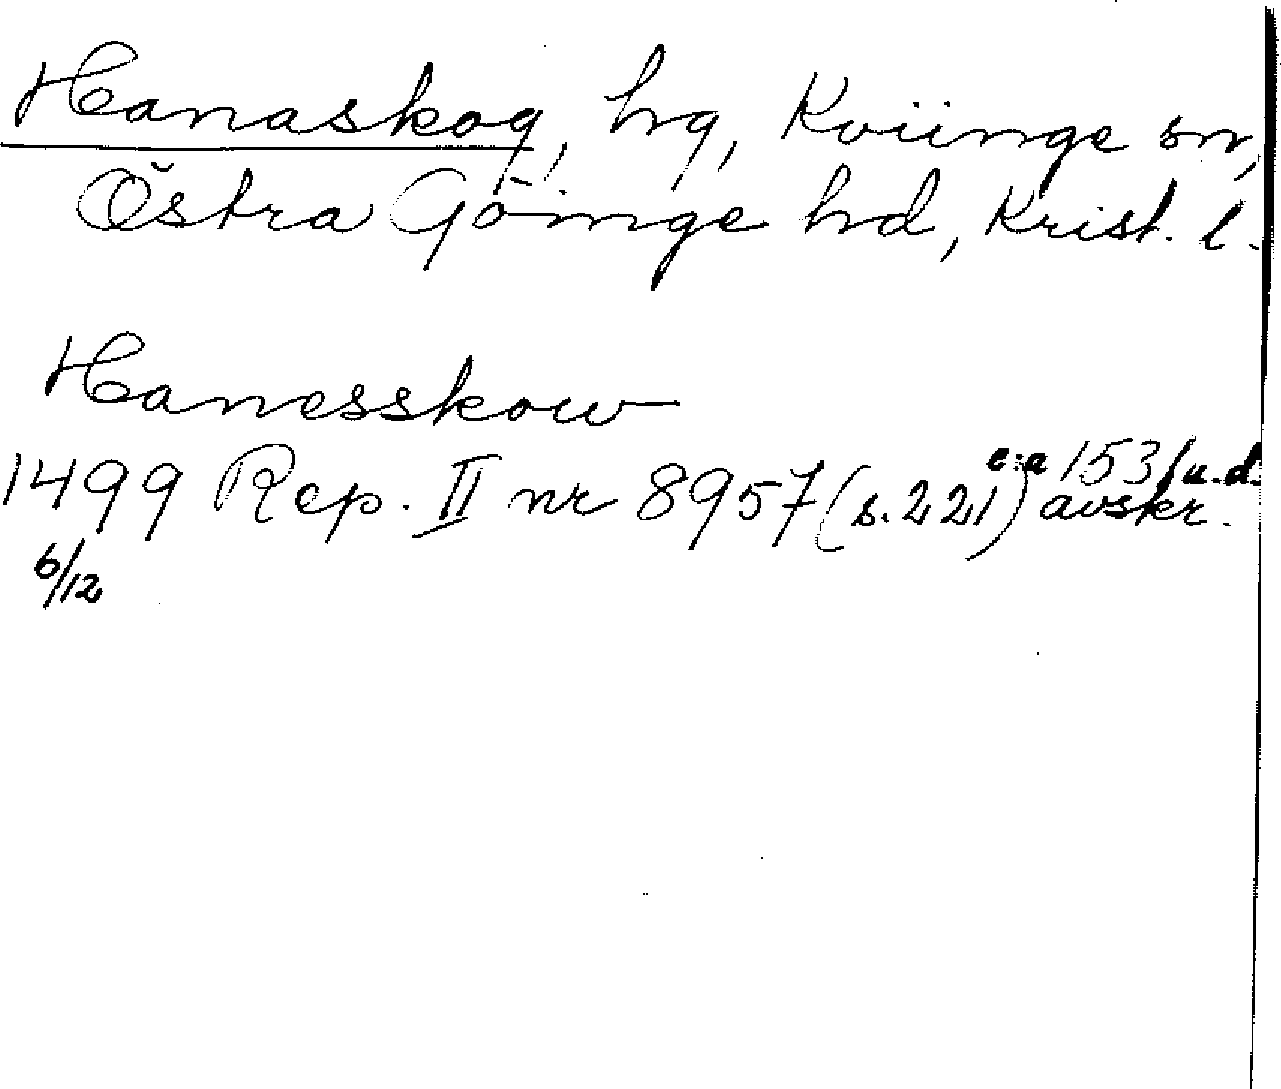 Hanaskog, hg, Kviinge sn,
Östra Göinge hd, Krist. l.
Hanesskow
1499 Rep. II nr 8957 (s. 221) c:a 1531 u.d. avskr.
6/12